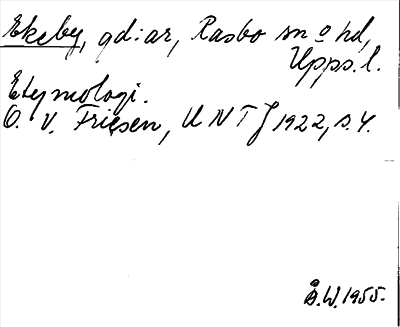 Ekeby, gd:ar, Rasbo sn o hd,
Upps. l.
Etymologi.
O. v. Friesen, UNT J 1922, s. 4.
Å.W. 1955.